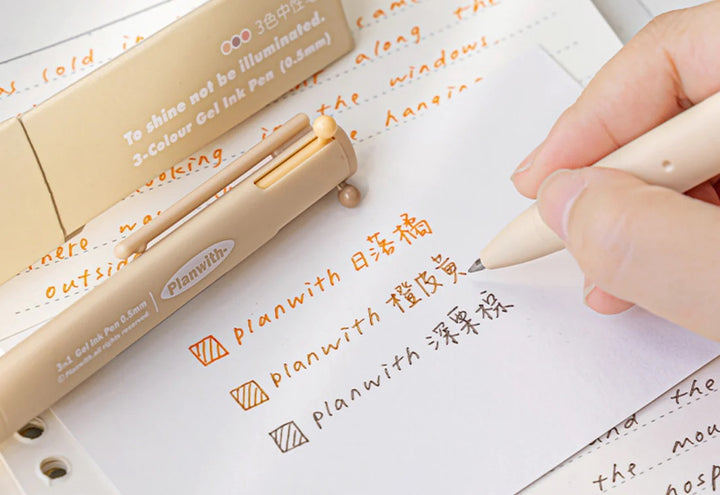 3色中性笔
To shine not be illuminated.
3-Colour Gel Ink Pen (0.5mm)
as sold in
same
along the
in the windows.
looking
the hanging
there was
outside
Planwith-
3in1 Gel Ink Pen 0.5mm
© Planwith.all rights reserved
planwith 日落橘
planwith 橙皮黄
planwith 深栗棕
and the
the mou
hosp